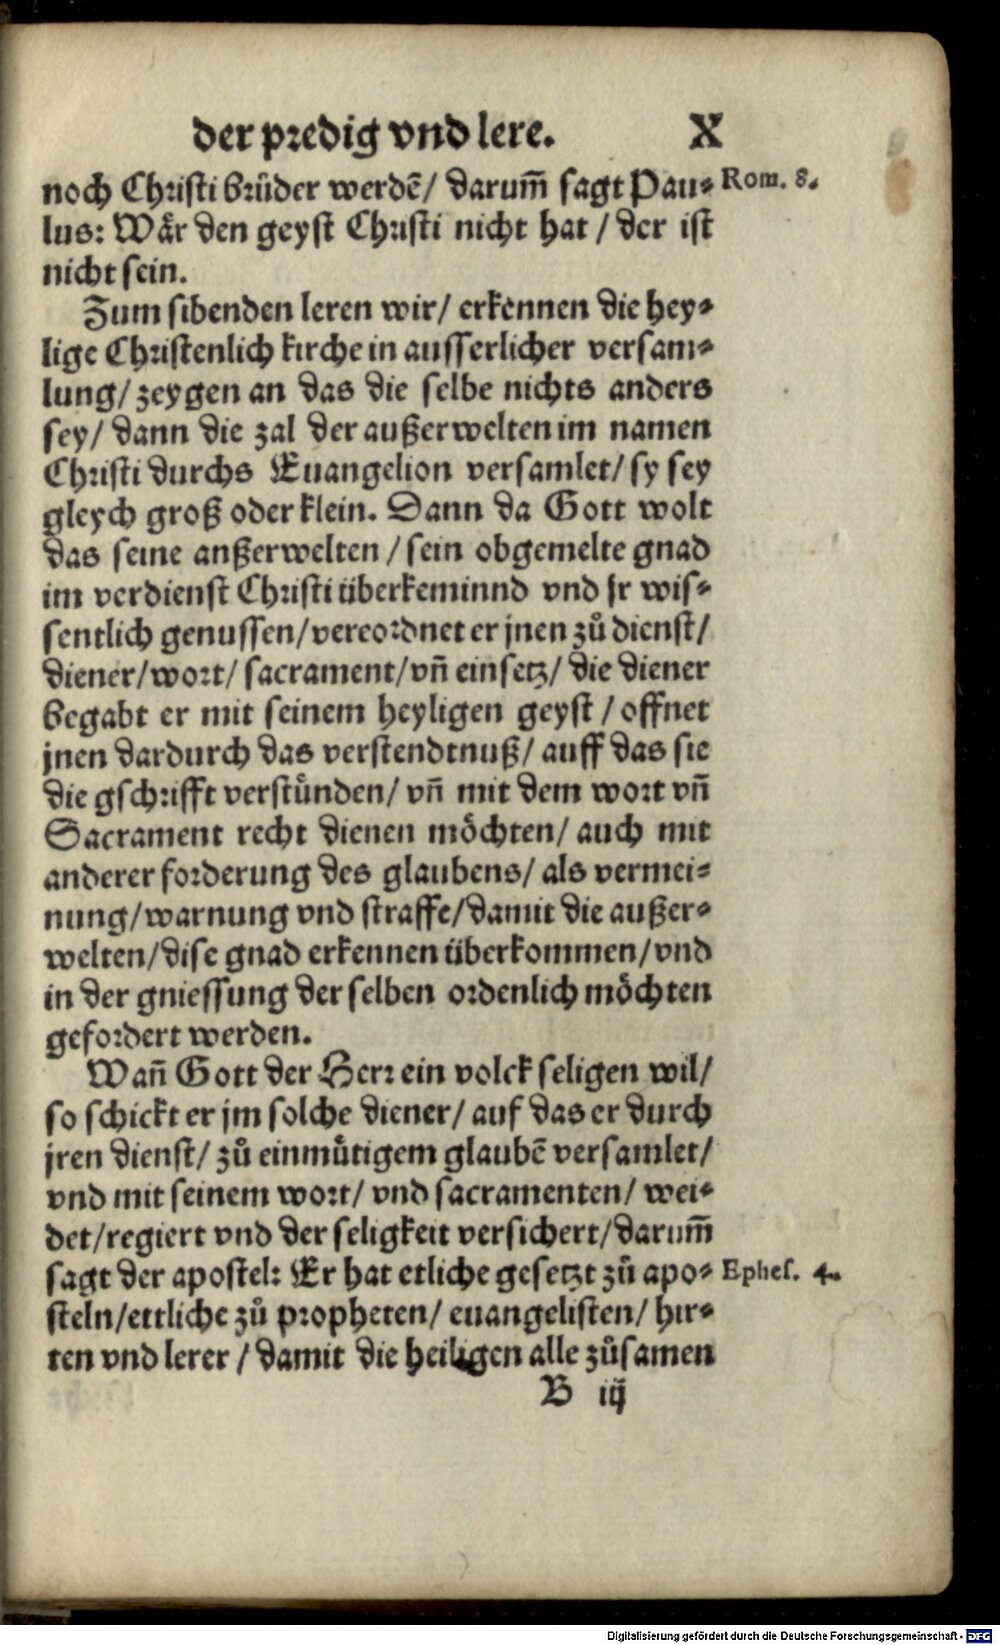 der predig vnd lere. X
noch Christi brüder werdē/ darum̃ sagt Pau⸗ Rom. 8.
lus: Wår den geyst Christi nicht hat / der ist
nicht sein.
Zum sibenden leren wir/ erkennen die hey⸗
lige Christenlich kirche in ausserlicher versam⸗
lung/ zeygen an das die selbe nichts anders
sey/ dann die zal der außerwelten im namen
Christi durchs Euangelion versamlet/ sy sey
gleych groß oder klein. Dann da Gott wolt
das seine anßerwelten / sein obgemelte gnad
im verdienst Christi überkeminnd vnd jr wis⸗
sentlich genussen/ vereordnet er jnen zů dienst/
diener/ wort/ sacrament/ vn̄ einsetz/ die diener
begabt er mit seinem heyligen geyst / offnet
jnen dardurch das verstendtnuß/ auff das sie
die gschrifft verstünden/ vn̄ mit dem wort vn̄
Sacrament recht dienen möchten/ auch mit
anderer forderung des glaubens/ als vermei⸗
nung/ warnung vnd straffe/ damit die außer⸗
welten/ dise gnad erkennen überkommen/ vnd
in der gniessung der selben ordenlich möchten
gefordert werden.
Wan̄ Gott der Herr ein volck seligen wil/
so schickt er jm solche diener/ auf das er durch
jren dienst/ zů einmůtigem glaubē versamlet/
vnd mit seinem wort/ vnd sacramenten/ wei⸗
det/ regiert vnd der seligkeit versichert/ darum̃
sagt der apostel: Er hat etliche gesetzt zů apo⸗ Ephes. 4.
steln/ ettliche zů propheten/ euangelisten/ hir⸗
ten vnd lerer / damit die heiligen alle zůsamen
B iij
Digitalisierung gefördert durch die Deutsche Forschungsgemeinschaft - DFG